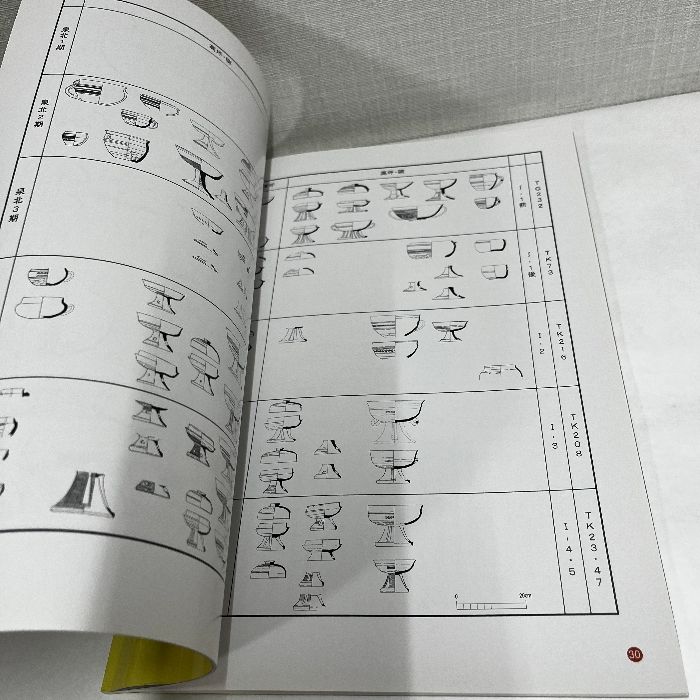 泉北1期
泉北2期
泉北3期
高坏・碗
高坏・碗
TG232
I・1前
TK73
I・1後
TK216
I・2
TK208
I・3
TK23・47
I・4・5
0 20cm
30